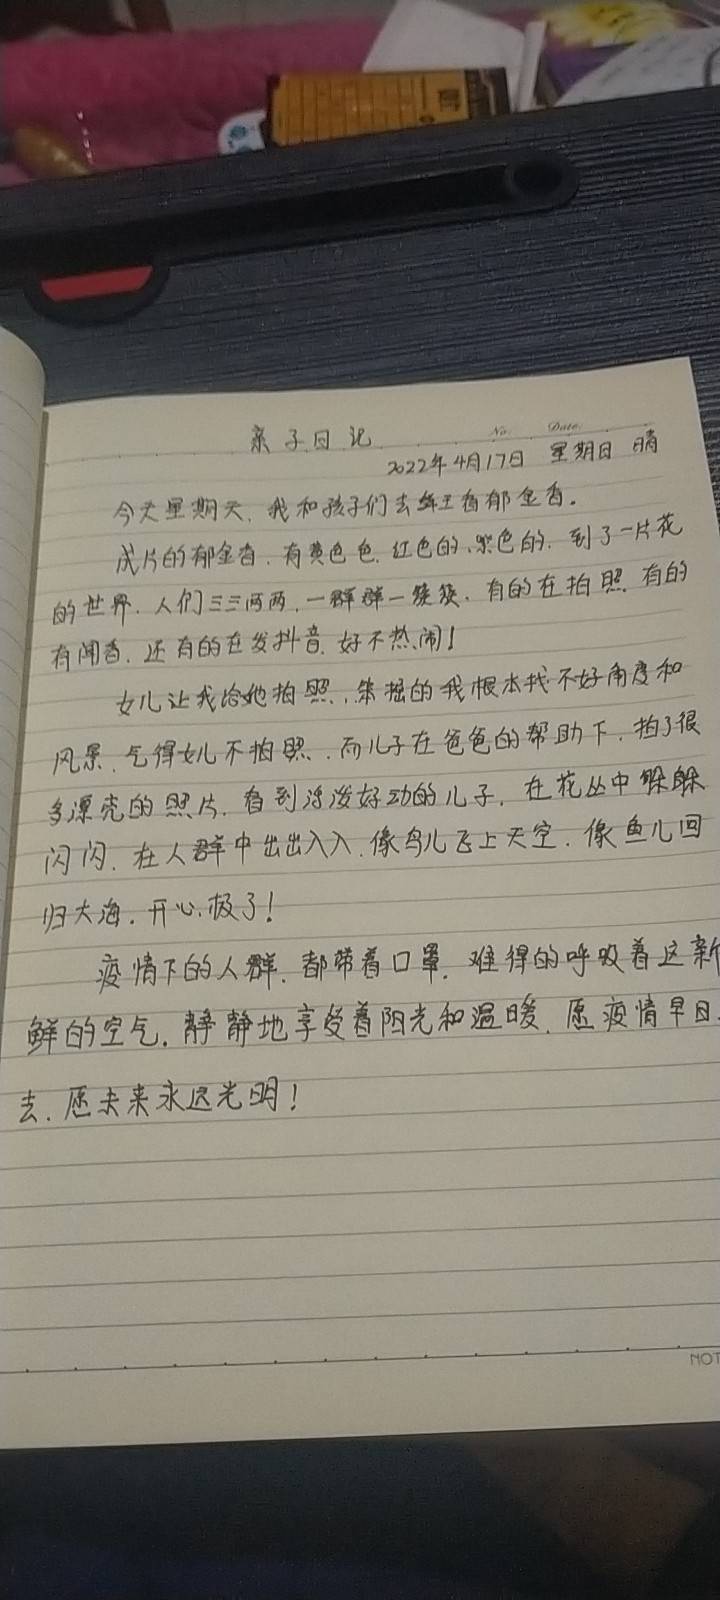 No.
Date.
亲子日记
2022年4月17日 星期日 晴
今天星期天、我和孩子们去 看郁金香。
成片的郁金香、有黄色色、红色的、紫色的、到了一片花
的世界、人们三三两两、一群群一簇簇、有的在拍照、有的
有闻香、还有的在发抖音、好不热闹!
女儿让我给她拍照、笨拙的我根本找不好角度和
风景、气得女儿不拍照、而儿子在爸爸的帮助下、拍了很
多漂亮的照片、看到活泼好动的儿子、在花丛中躲躲
闪闪、在人群中出出入入、像鸟儿飞上天空、像鱼儿回
归大海、开心极了!
疫情下的人群、都带着口罩、难得的呼吸着这新
鲜的空气、静静地享受着阳光和温暖、愿疫情早日
去、愿未来永远光明!
NOT